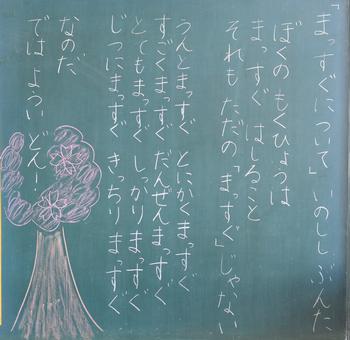 「まっすぐについて」いのしし ぶんた
ぼくの もくひょうは
まっすぐ はしること
それも ただの「まっすぐ」じゃない
うんとまっすぐ とにかくまっすぐ
すごくまっすぐ だんぜんまっすぐ
とてもまっすぐ しっかりまっすぐ
じつにまっすぐ きっちりまっすぐ
なのだ
では よういどん!